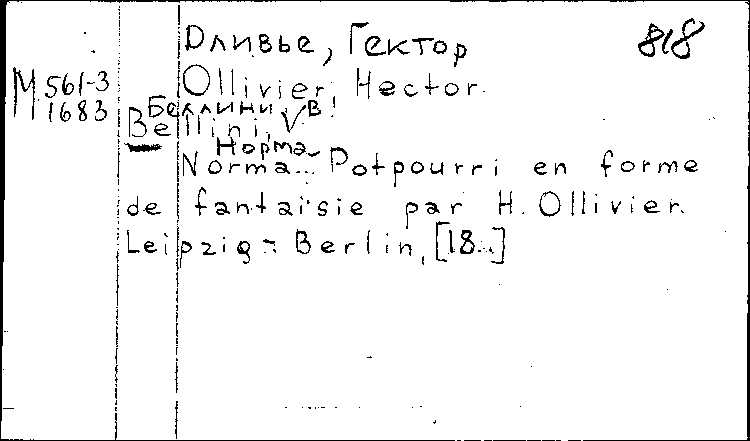 Оливье, Гектор
818
M 561-3
1683
Ollivier, Hector.
Беллини, В.
Bellini, V.
Норма
Norma... Potpourri en forme
de fantaisie par H. Ollivier.
Leipzig - Berlin, [18..]